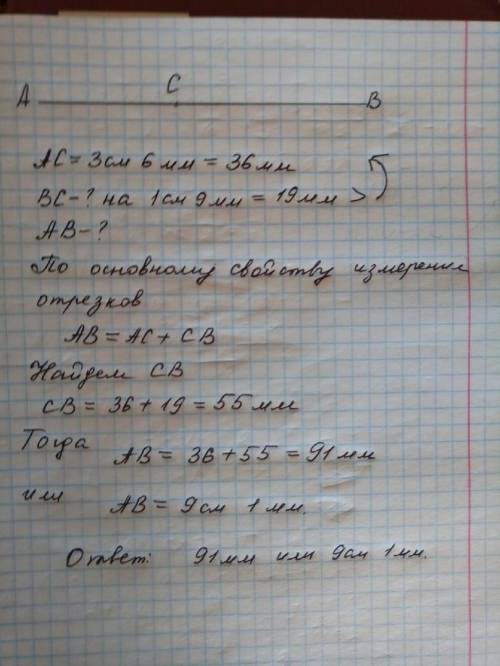 C
A B
AC = 3см 6 мм = 36мм
BC - ? на 1см 9мм = 19мм >
AB - ?
По основному свойству измерения
отрезков
AB = AC + CB
Найдем CB
CB = 36 + 19 = 55 мм
Тогда AB = 36 + 55 = 91 мм
или AB = 9 см 1 мм.
Ответ: 91 мм или 9см 1 мм.